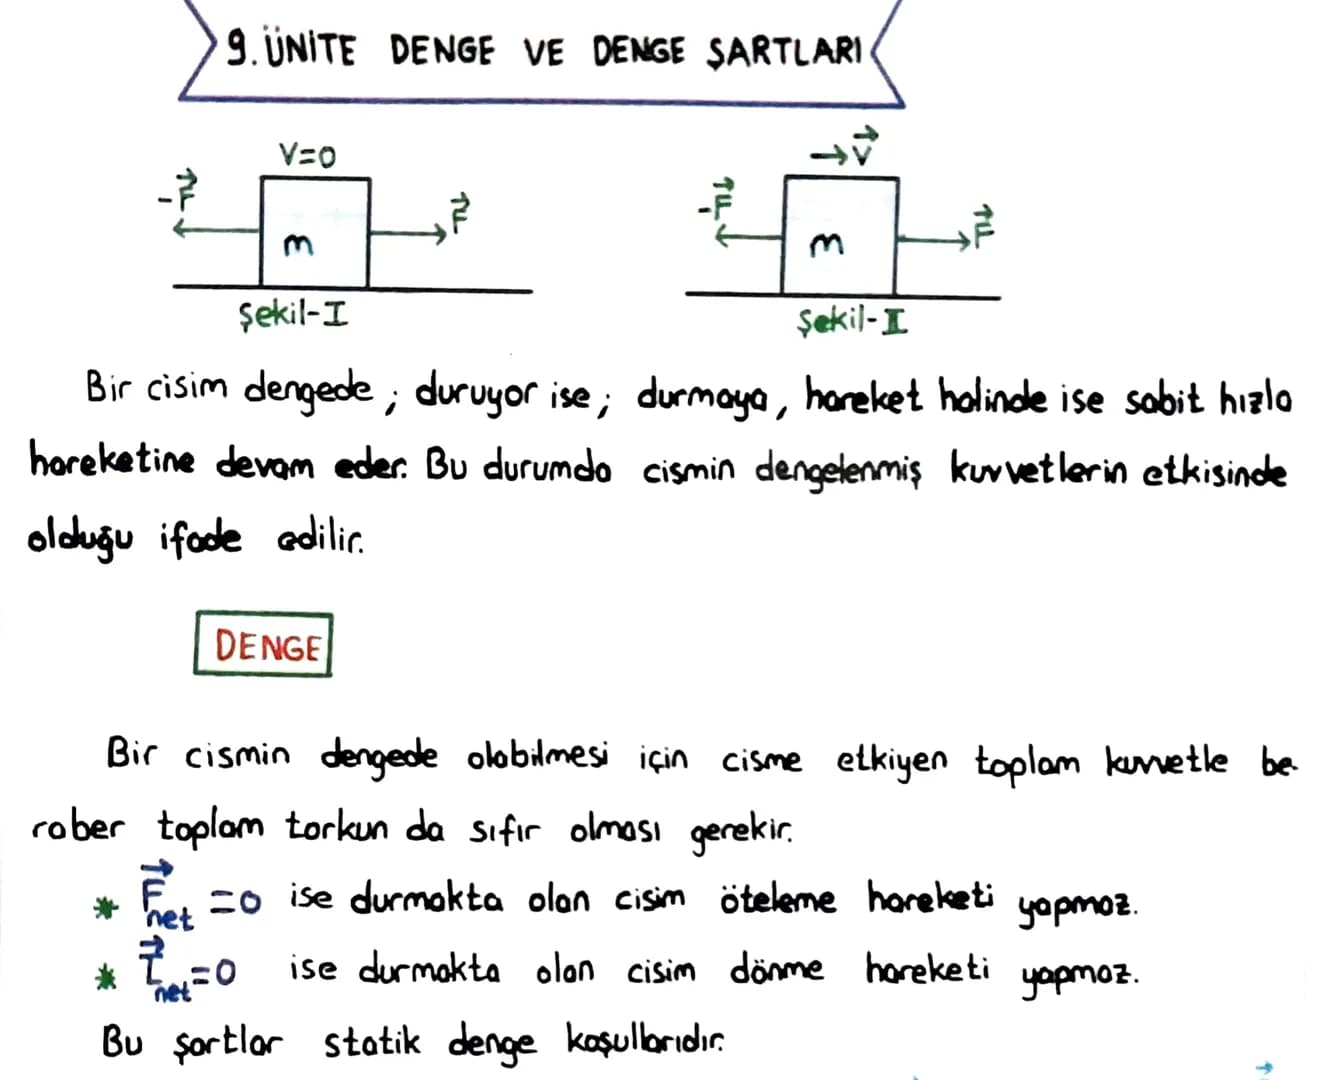 9. ÜNİTE DENGE VE DENGE ŞARTLARI
V=0
→V
-F
F
-F
F
m
m
Şekil-I
Şekil-II
Bir cisim dengede ; duruyor ise ; durmaya, hareket halinde ise sabit hızla
hareketine devam eder. Bu durumda cismin dengelenmiş kuvvetlerin etkisinde
olduğu ifade edilir.
DENGE
Bir cismin dengede olabilmesi için cisme etkiyen toplam kuvvetle be-
raber toplam torkun da sıfır olması gerekir.
* F⃗net =0 ise durmakta olan cisim öteleme hareketi yapmaz.
* τ⃗net=0 ise durmakta olan cisim dönme hareketi yapmaz.
Bu şartlar statik denge koşullarıdır.